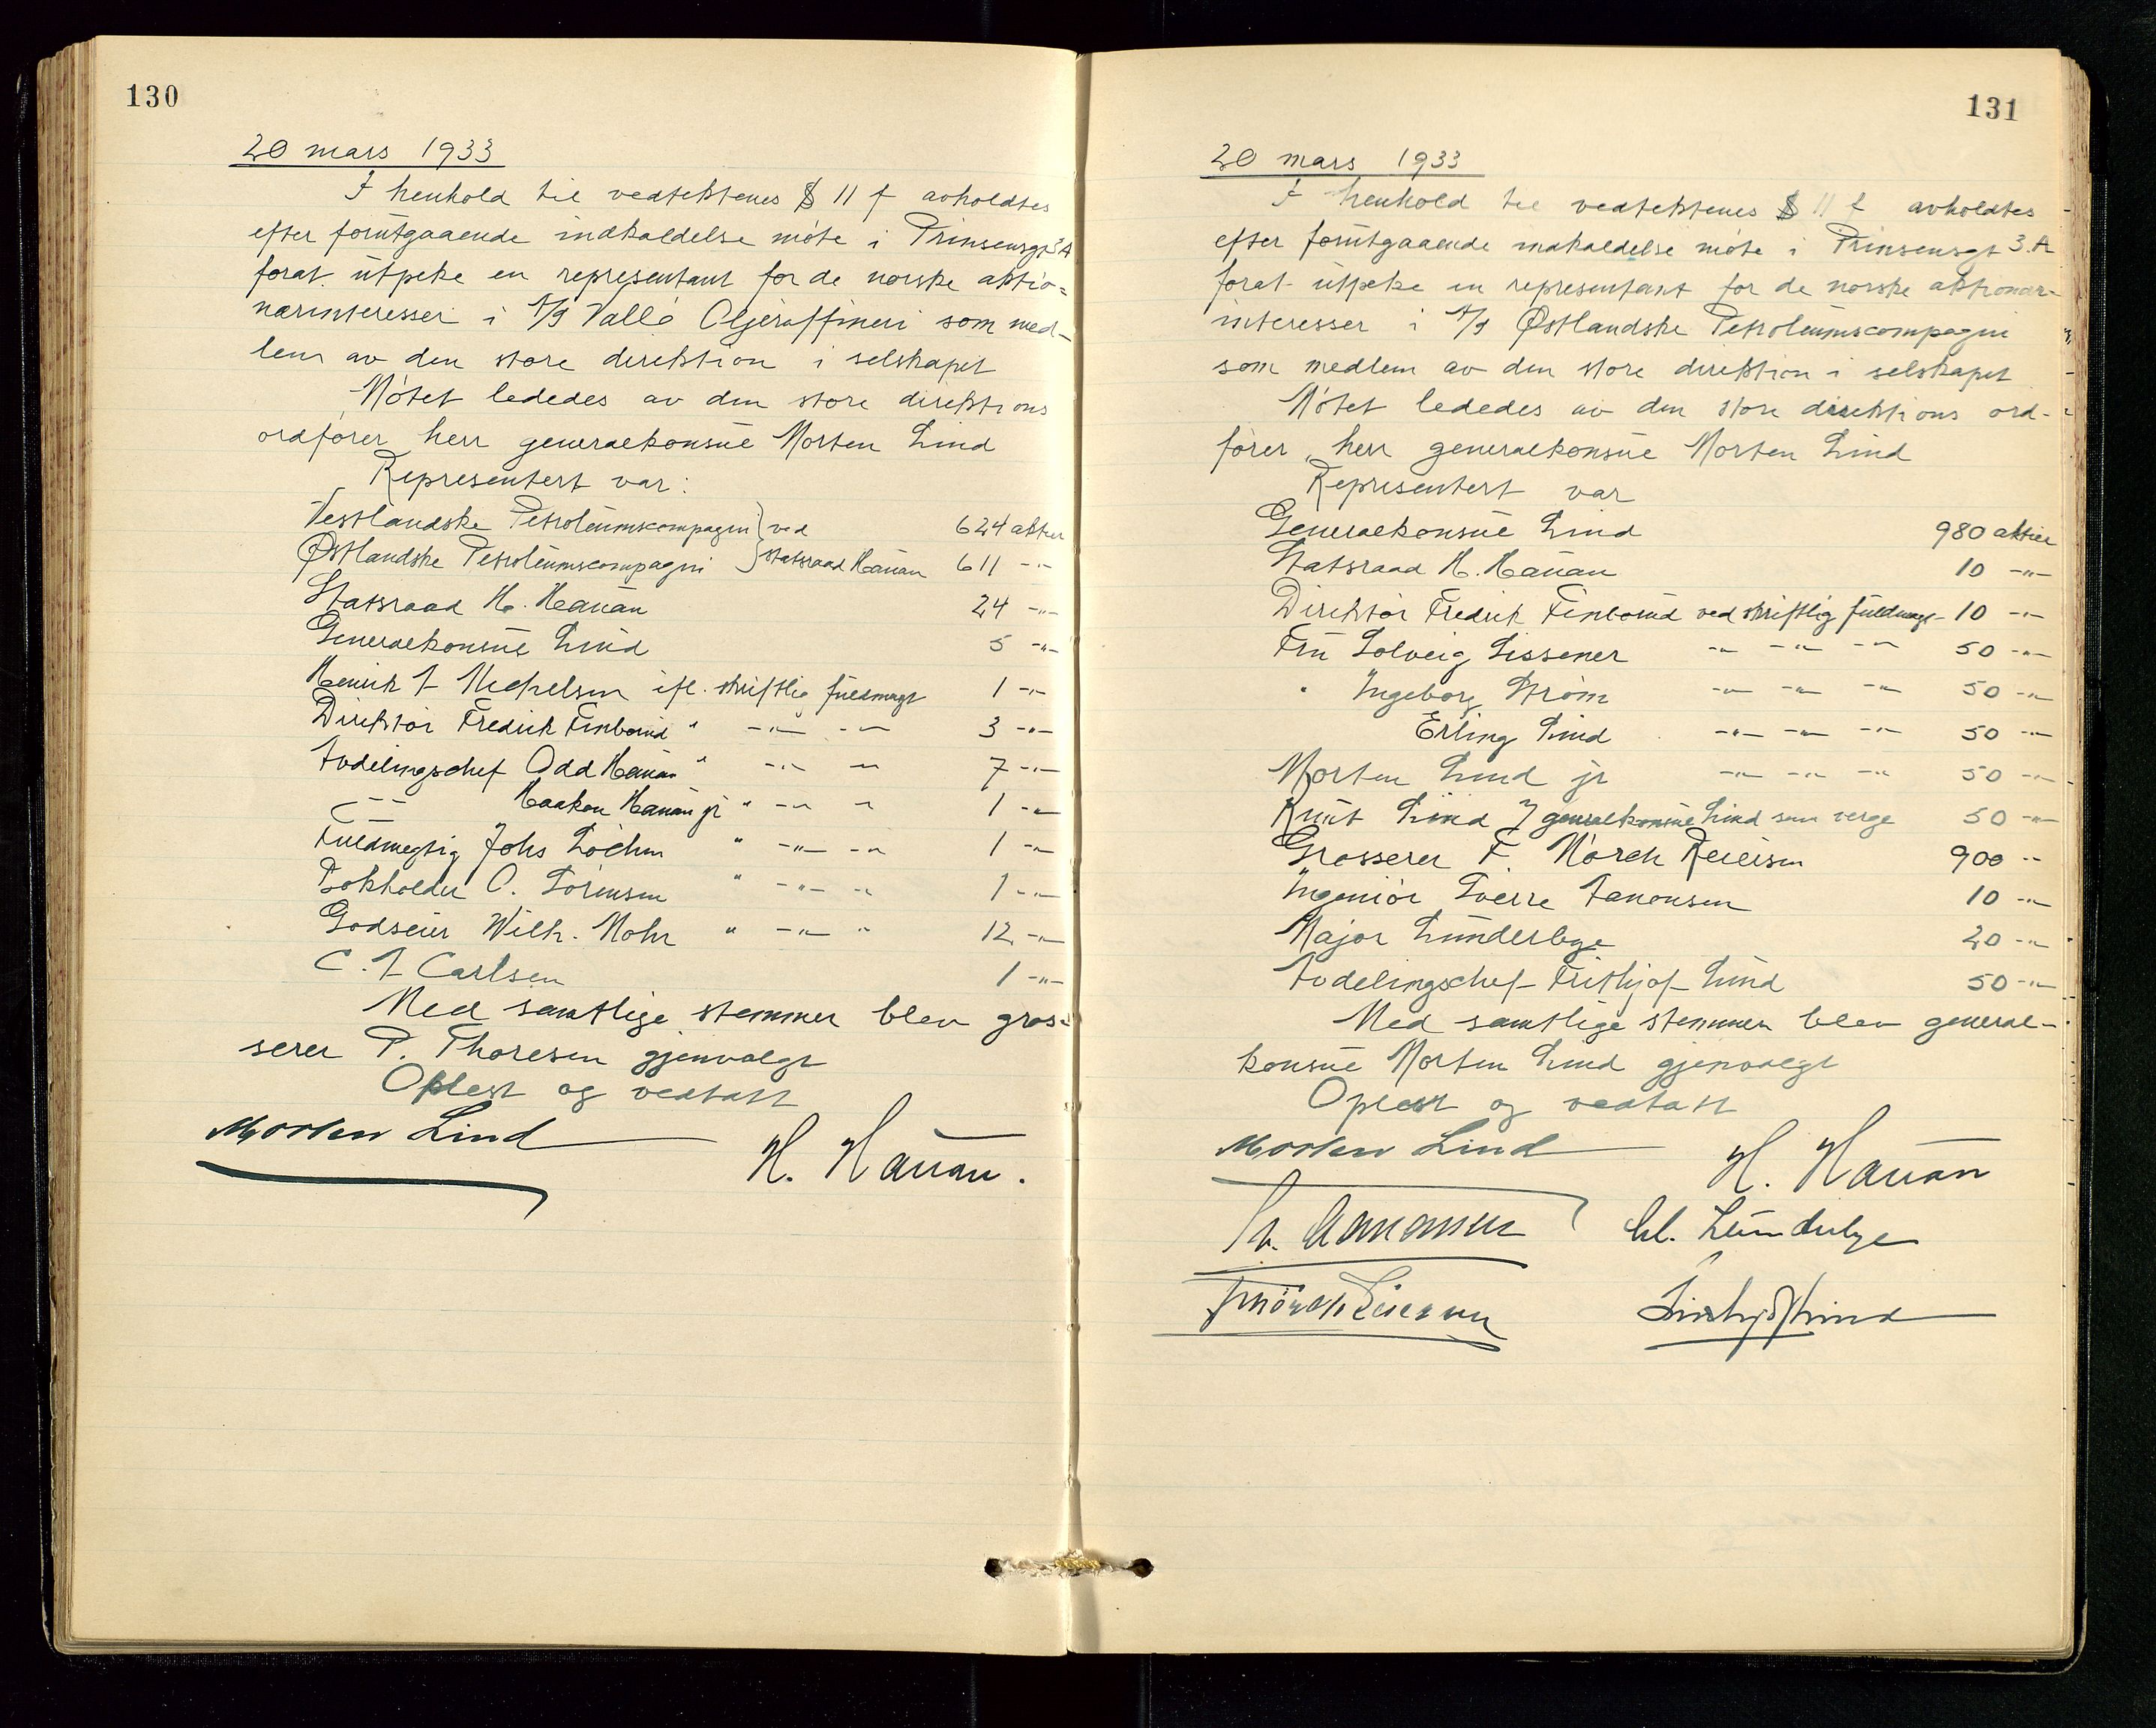 130
20 mars 1933
I henhold til vedtektenes § 11 f avholdtes
efter forutgaaende indkaldelse möte i Prinsensgt 3A
forat utpeke en representant for de norske aktio=
nærinteresser i A/S Vallö Oljeraffineri som med-
lem av den store direktion i selskapet
Mötet lededes av den store direktions
ordförer, herr generalkonsul Morten Lind
Representert var:
Vestlandske Petroleumscompagni } ved 624 aktier
Østlandske Petroleumscompagni } statsraad Hauan 611 -"-
Statsraad H. Hauan 24 -"-
Generalkonsul Lind 5 -"-
Henrik J Michelsen ifl. skriftlig fuldmagt 1 -"-
Direktör Fredrik Finborud " -"- -"- 3 -"-
Avdelingschef Odd Hauan " -"- -"- 7 -"-
-"- Haakon Hauan jr " -"- -"- 1 -"-
Fuldmegtig Johs Löchen " -"- -"- 1 -"-
Bokholder O. Sörensen " -"- -"- 1 -"-
Godseier Wilh. Mohr " -"- " 12 -"-
C. A Carlsen 1 -"-
Med samtlige stemmer blev gros=
serer P. Thoresen gjenvalgt
Oplest og vedtatt
Morten Lind
H. Hauan.
131
20 mars 1933
I henhold til vedtektenes § 11 f avholdtes
efter forutgaaende indkaldelse möte i Prinsensgt 3.A
forat utpeke en representant for de norske aktionær-
interesser i A/S Østlandske Petroleumscompagni
som medlem av den store direktion i selskapet
Mötet lededes av den store direktions ord-
förer, herr generalkonsul Morten Lind
Representert var
Generalkonsul Lind 980 aktier
Statsraad H. Hauan 10 -"-
Direktör Fredrik Finborud ved skriftlig fuldmagt 10 -"-
Fru Solveig Lissener -"- -"- -"- 50 -"-
" Ingeborg Ström -"- -"- -"- 50 -"-
Erling Lind -"- -"- -"- 50 -"-
Morten Lind jr -"- -"- -"- 50 -"-
Knut Lind } generalkonsul Lind som verge 50 -"-
Grosserer F. Mörch Reiersen 900 -"-
Ingeniör Sverre Aanonsen 10 -"-
Major Lunderbye 20 -"-
Avdelingschef Frithjof Lind 50 -"-
Med samtlige stemmer blev general-
konsul Morten Lind gjenvalgt
Oplest og vedtatt
Morten Lind
H. Hauan
Sv. Aanonsen
Lunderbye
F Mörch Reiersen
Frithjof Lind